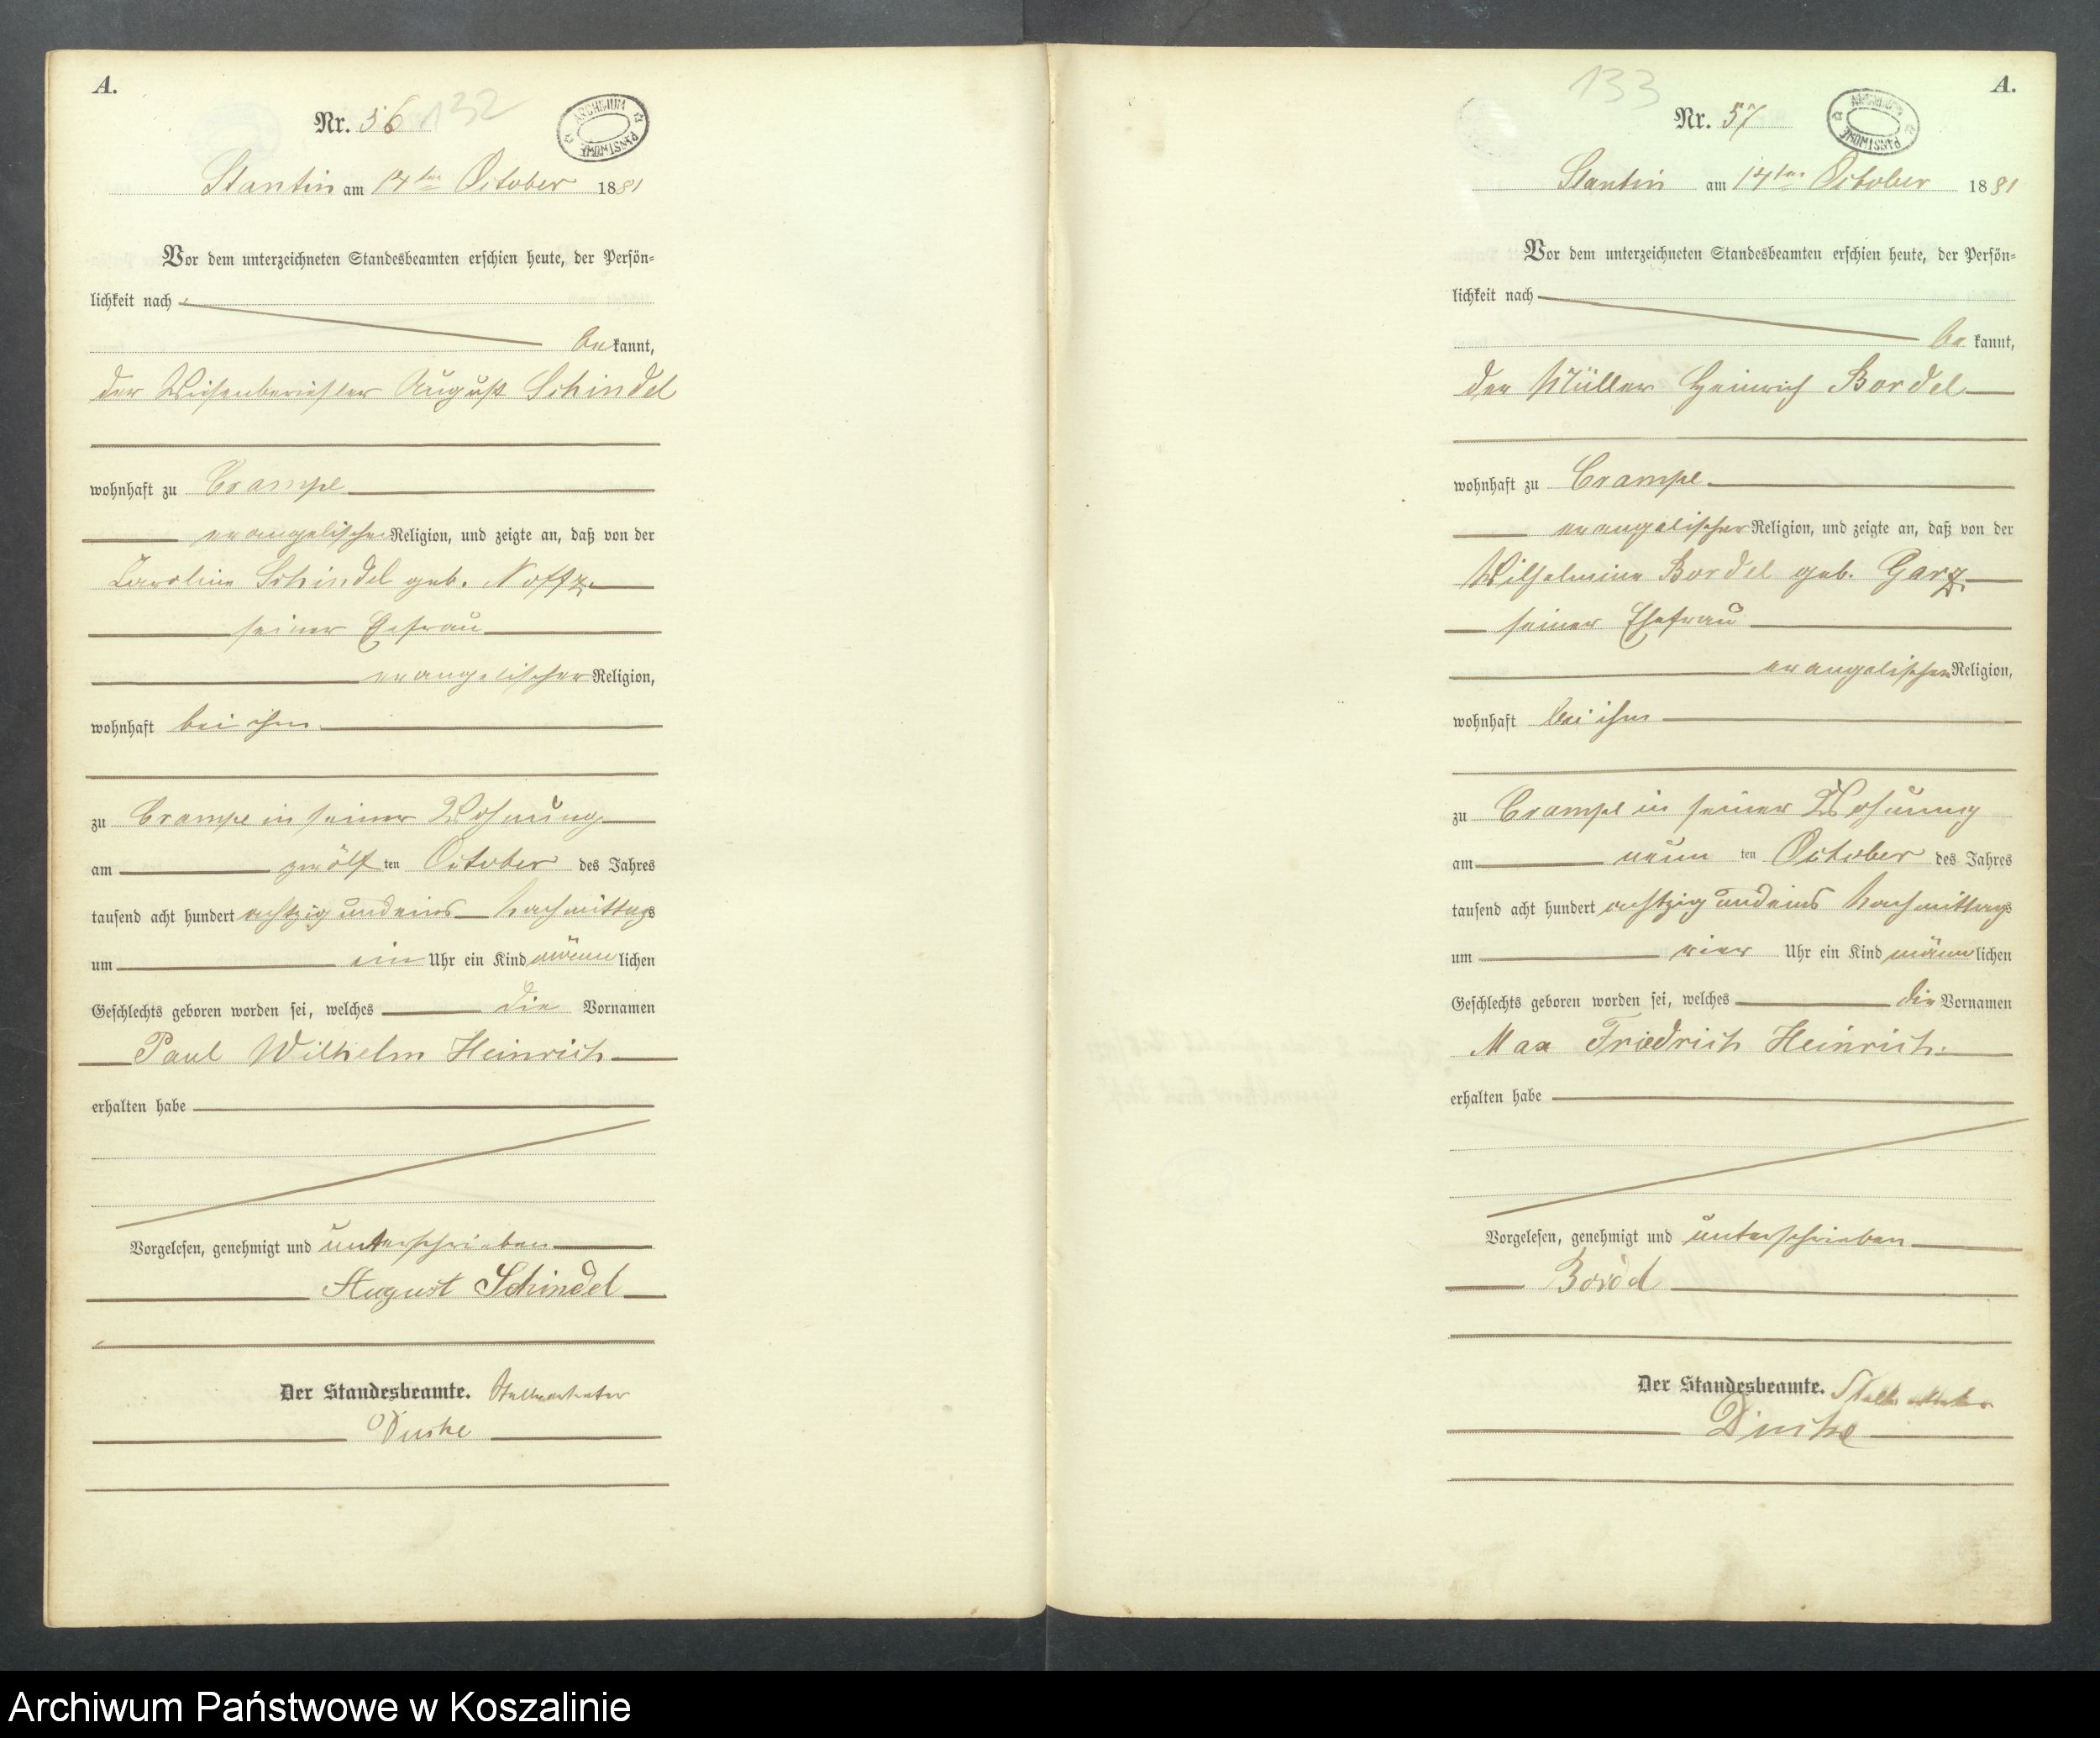 A.
Nr. 56 132
ARCHIWUM PAŃSTWOWE
Stantin am 14ten October 1881
Vor dem unterzeichneten Standesbeamten erschien heute, der Persön-
lichkeit nach
bekannt,
der August Schindel
wohnhaft zu Crampe
evangelischer Religion, und zeigte an, daß von der
Caroline Schindel geb. Noffz
seiner Ehefrau
evangelischer Religion,
wohnhaft bei ihm
zu Crampe in seiner Wohnung
am zwölf ten October des Jahres
tausend acht hundert achtzig und eins Nachmittags
um ein Uhr ein Kind männlichen
Geschlechts geboren worden sei, welches die Vornamen
Paul Wilhelm Heinrich
erhalten habe
Vorgelesen, genehmigt und unterschrieben
August Schindel
Der Standesbeamte. Stellvertreter
A.
133
Nr. 57
ARCHIWUM PAŃSTWOWE
Stantin am 14ten October 1881
Vor dem unterzeichneten Standesbeamten erschien heute, der Persön-
lichkeit nach
bekannt,
der Müller Heinrich Bordel
wohnhaft zu Crampe
evangelischer Religion, und zeigte an, daß von der
Wilhelmine Bordel geb. Garz
seiner Ehefrau
evangelischer Religion,
wohnhaft bei ihm
zu Crampe in seiner Wohnung
am neun ten October des Jahres
tausend acht hundert achtzig und eins Nachmittags
um vier Uhr ein Kind männlichen
Geschlechts geboren worden sei, welches die Vornamen
Max Friedrich Heinrich
erhalten habe
Vorgelesen, genehmigt und unterschrieben
Der Standesbeamte. Stellvertreter
Archiwum Państwowe w Koszalinie